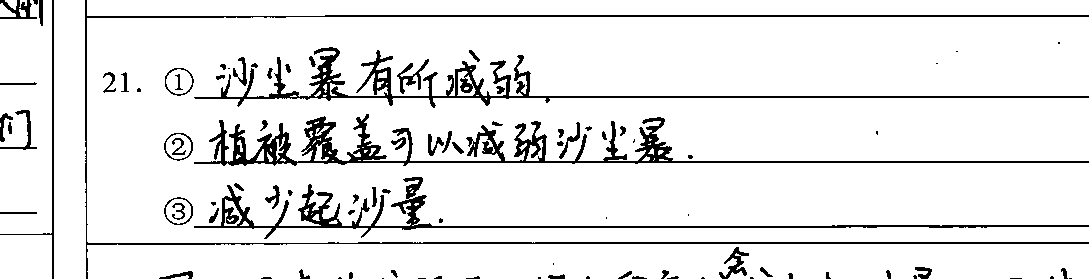 们
21. ① 沙尘暴有所减弱.
② 植被覆盖可以减弱沙尘暴.
③ 减少起沙量.